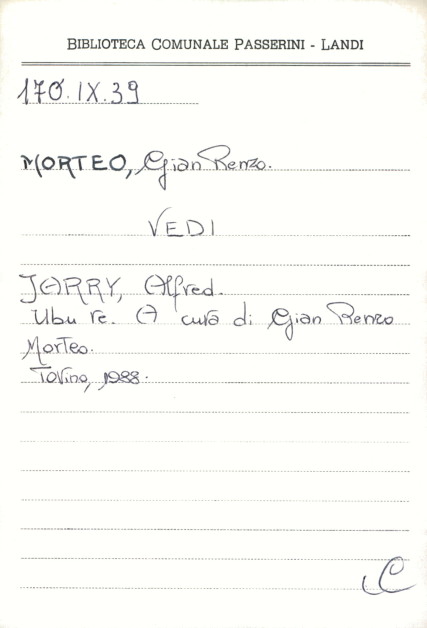 BIBLIOTECA COMUNALE PASSERINI - LANDI
170.IX.39
MORTEO, Gian Renzo.
VEDI
JARRY, Alfred.
Ubu re. A cura di Gian Renzo
Morteo.
Torino, 1988.
C